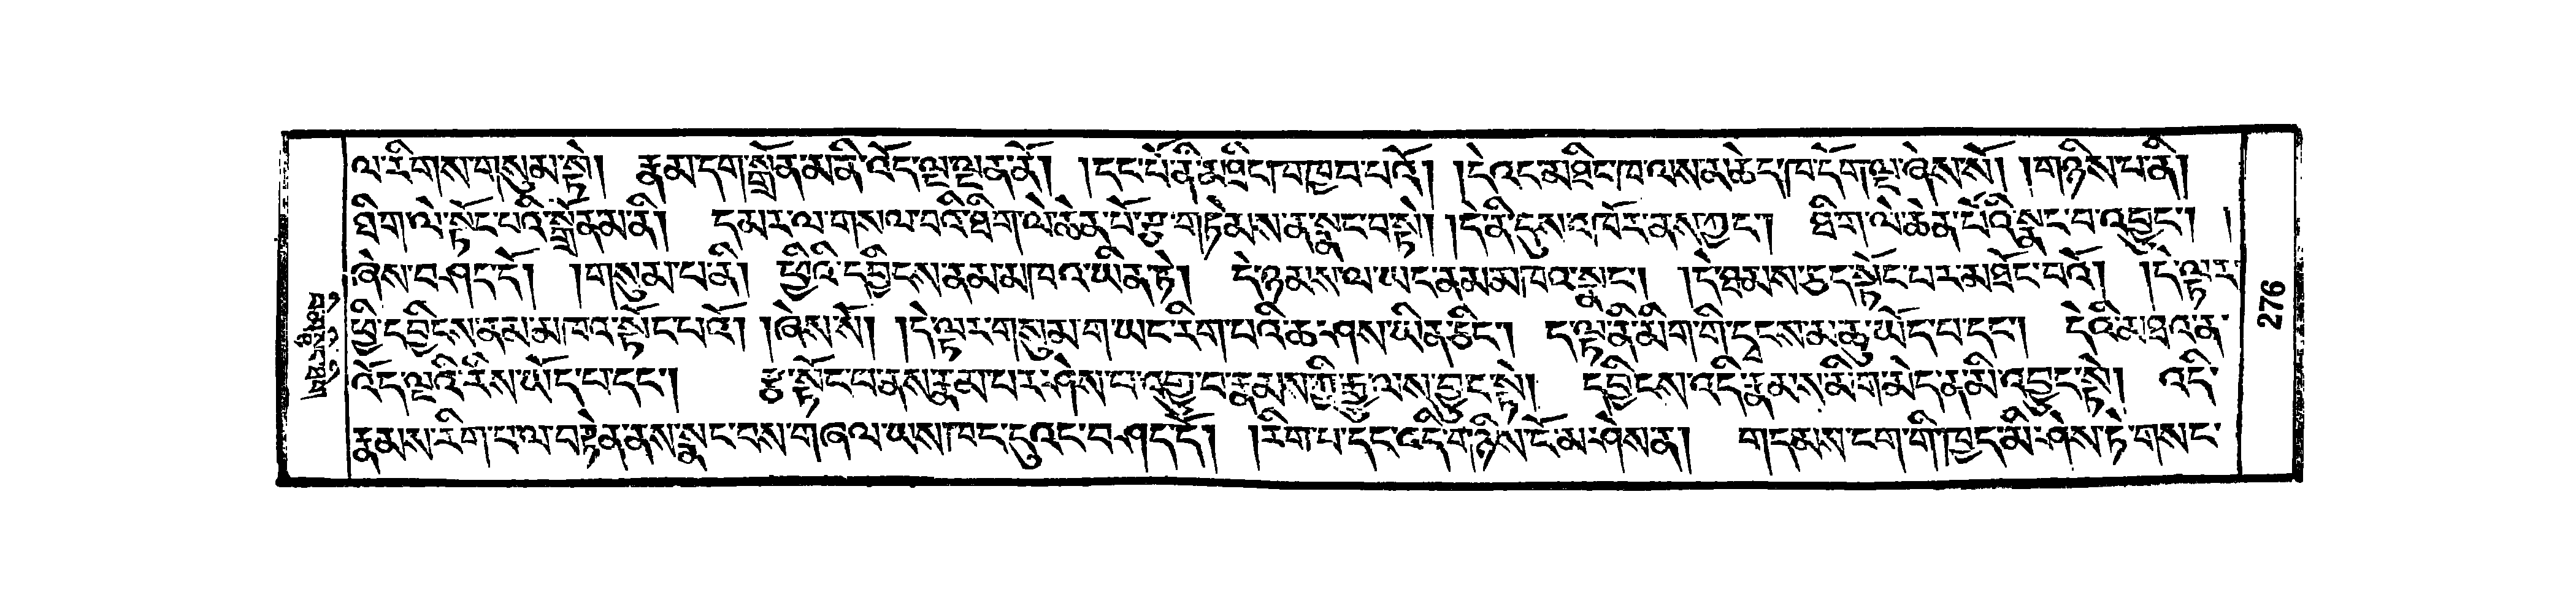 ལ་རིགས་གསུམ་སྟེ། རྣམ་དག་སྒྲོན་མ་ནི་འོད་ལྔ་ལྡན་ནོ། །དང་པོ་ནི་མཐིང་ག་ཁྱབ་པའོ། །དེའང་མཐིང་ཁ་ལས་ན་ཆེད་ཁ་དོག་ལྔ་ཞེས་སོ། །གཉིས་པ་ནི།
ཐིག་ལེ་སྟོང་པའི་སྒྲོན་མ་ནི། དམར་ལ་གསལ་བའི་ཐིག་ལེ་ཆེན་པོ་རྩ་གཏུམས་ན་སྣང་བ་སྟེ། །དེ་ནི་དུས་འཁོར་ནས་ཀྱང་། ཐིག་ལེ་ཆེན་པོའི་སྣང་བ་འབྱུང་། །
ཞེས་བཤད་དོ། །གསུམ་པ་ནི། ཕྱིའི་དབྱིངས་ནམ་མཁའ་ཡིན་ཏེ། དེ་ཉམས་ལ་ཡང་ནམ་མཁའ་སྣང་། །དེ་ཐམས་ཅད་སྟོང་པར་མཐོང་བའོ། །དེ་ལྟར་
ཕྱི་དབྱིངས་ནམ་མཁའ་སྟོང་པའོ། །ཞེས་སོ། །དེ་ལྟར་གསུམ་ག་ཡང་རིག་པའི་ཆ་ཤས་ཡིན་ཅིང་། ད་ལྟ་ནི་མིག་གི་དྭངས་མ་ན་ཡོད་པ་དང་། དེའི་མཐའ་ན་
འོད་ལྔའི་རིས་ཡོད་པ་དང་། རྩ་སྟོང་པ་ནས་རྣམ་པར་ཤེས་པ་འབྱུ་བ་རྣམས་ཀྱི་རྩ་ལས་བྱུང་སྟེ། དབྱིངས་འདི་རྣམས་མིག་མེད་ན་མི་འབྱུང་སྟེ། འདི་
རྣམས་རིག་པ་ལ་བརྟེན་ནས་སྣང་བས་གཞལ་ཡས་ཁང་དུའང་བཤད་དོ། །རིག་པ་དང་འདི་གཉིས་ངོ་མ་ཤེས་ན། གདམས་ངག་གི་ཁྱད་མི་ཤེས་ཏེ་གསང་
276